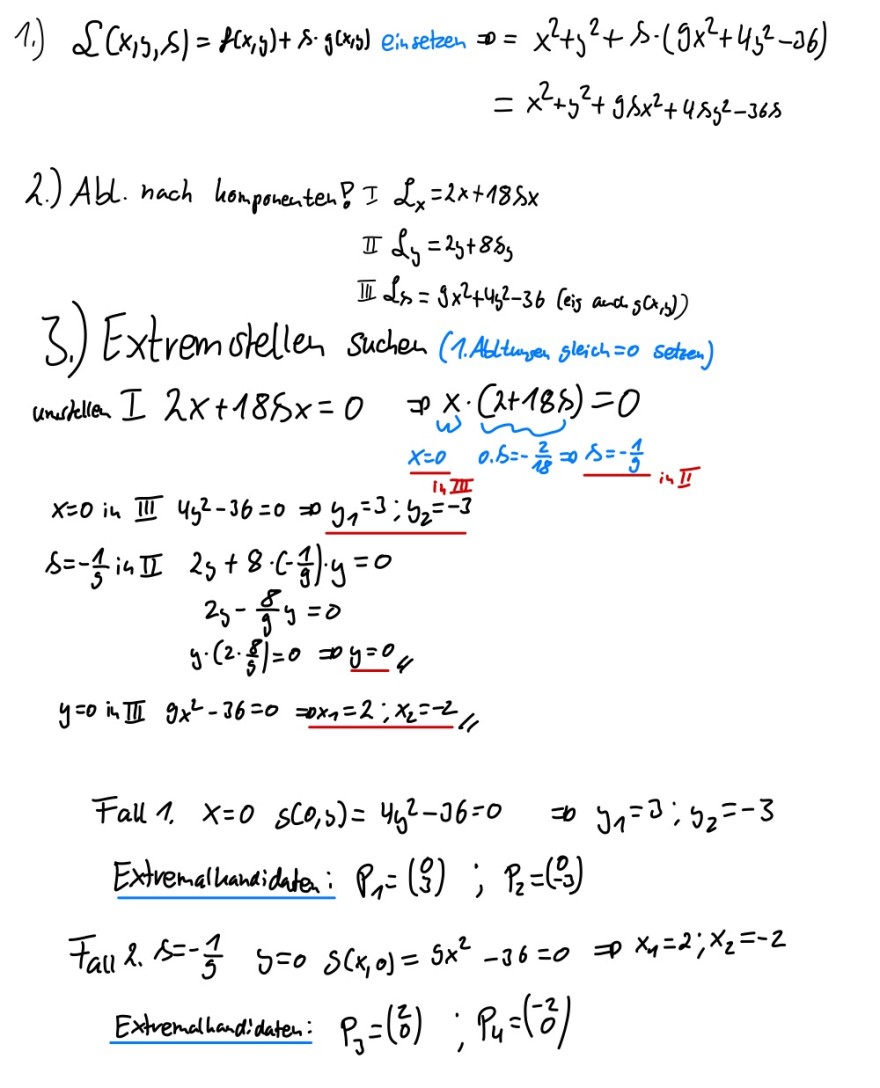 1.) L(x,y,s) = f(x,y) + s · g(x,y) einsetzen ⇒ = x²+y²+ s·(9x²+4y²-36)
= x²+y²+ 9sx²+4sy²-36s
2.) Abl. nach komponenten! I Lx = 2x+18sx
II Ly = 2y+8sy
III Ls = 9x²+4y²-36 (eig auch g(x,y))
3.) Extremstellen suchen (1. Abltungen gleich =0 setzen)
umstellen I 2x+18sx = 0 ⇒ x · (2+18s) = 0
x=0 o. s=-2/18 ⇒ s=-1/9 in II
in III
x=0 in III 4y²-36=0 ⇒ y₁=3 ; y₂=-3
s=-1/9 in II 2y + 8·(-1/9)·y = 0
2y - 8/9 y = 0
y·(2·8/9)=0 ⇒ y=0
y=0 in III 9x²-36=0 ⇒ x₁=2 ; x₂=-2
Fall 1. x=0 g(0,y) = 4y²-36=0 ⇒ y₁=3 ; y₂=-3
Extremalkandidaten: P₁=(0 3) ; P₂=(0 -3)
Fall 2. s=-1/9 y=0 g(x,0) = 9x² -36=0 ⇒ x₁=2 ; x₂=-2
Extremalkandidaten: P₃=(2 0) ; P₄=(-2 0)